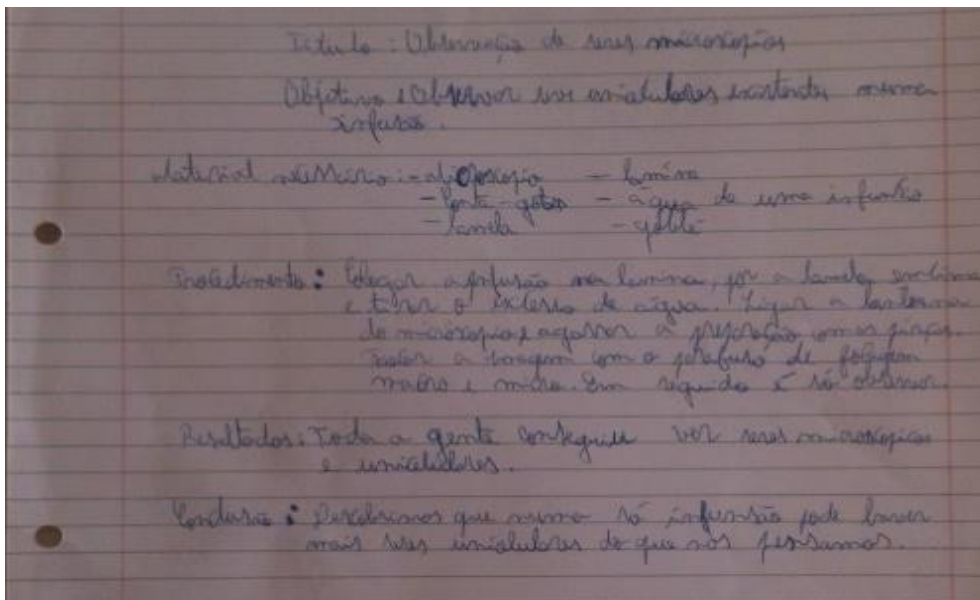 Titulo : Observação de seres microscópios
Objetivo : Observar seres unicelulares existentes numa
infusão.
Material necessário : - Microscopio - lamina
- Conta-gotas - água de uma infusão
- lamela - gobelé
Procedimento : Colocar a infusão na lamina, por a lamela em cima
e tirar o excesso de água. Ligar a lanterna
do microscopio e agarrar a preparação com as pinças.
Focar a imagem com o parafuso de focagem
macro e micro. Em seguida é só observar.
Resultados : Toda a gente conseguiu ver seres microscópicos
e unicelulares.
Conclusão : Descobrimos que numa só infusão pode haver
mais seres unicelulares do que nós pensamos.